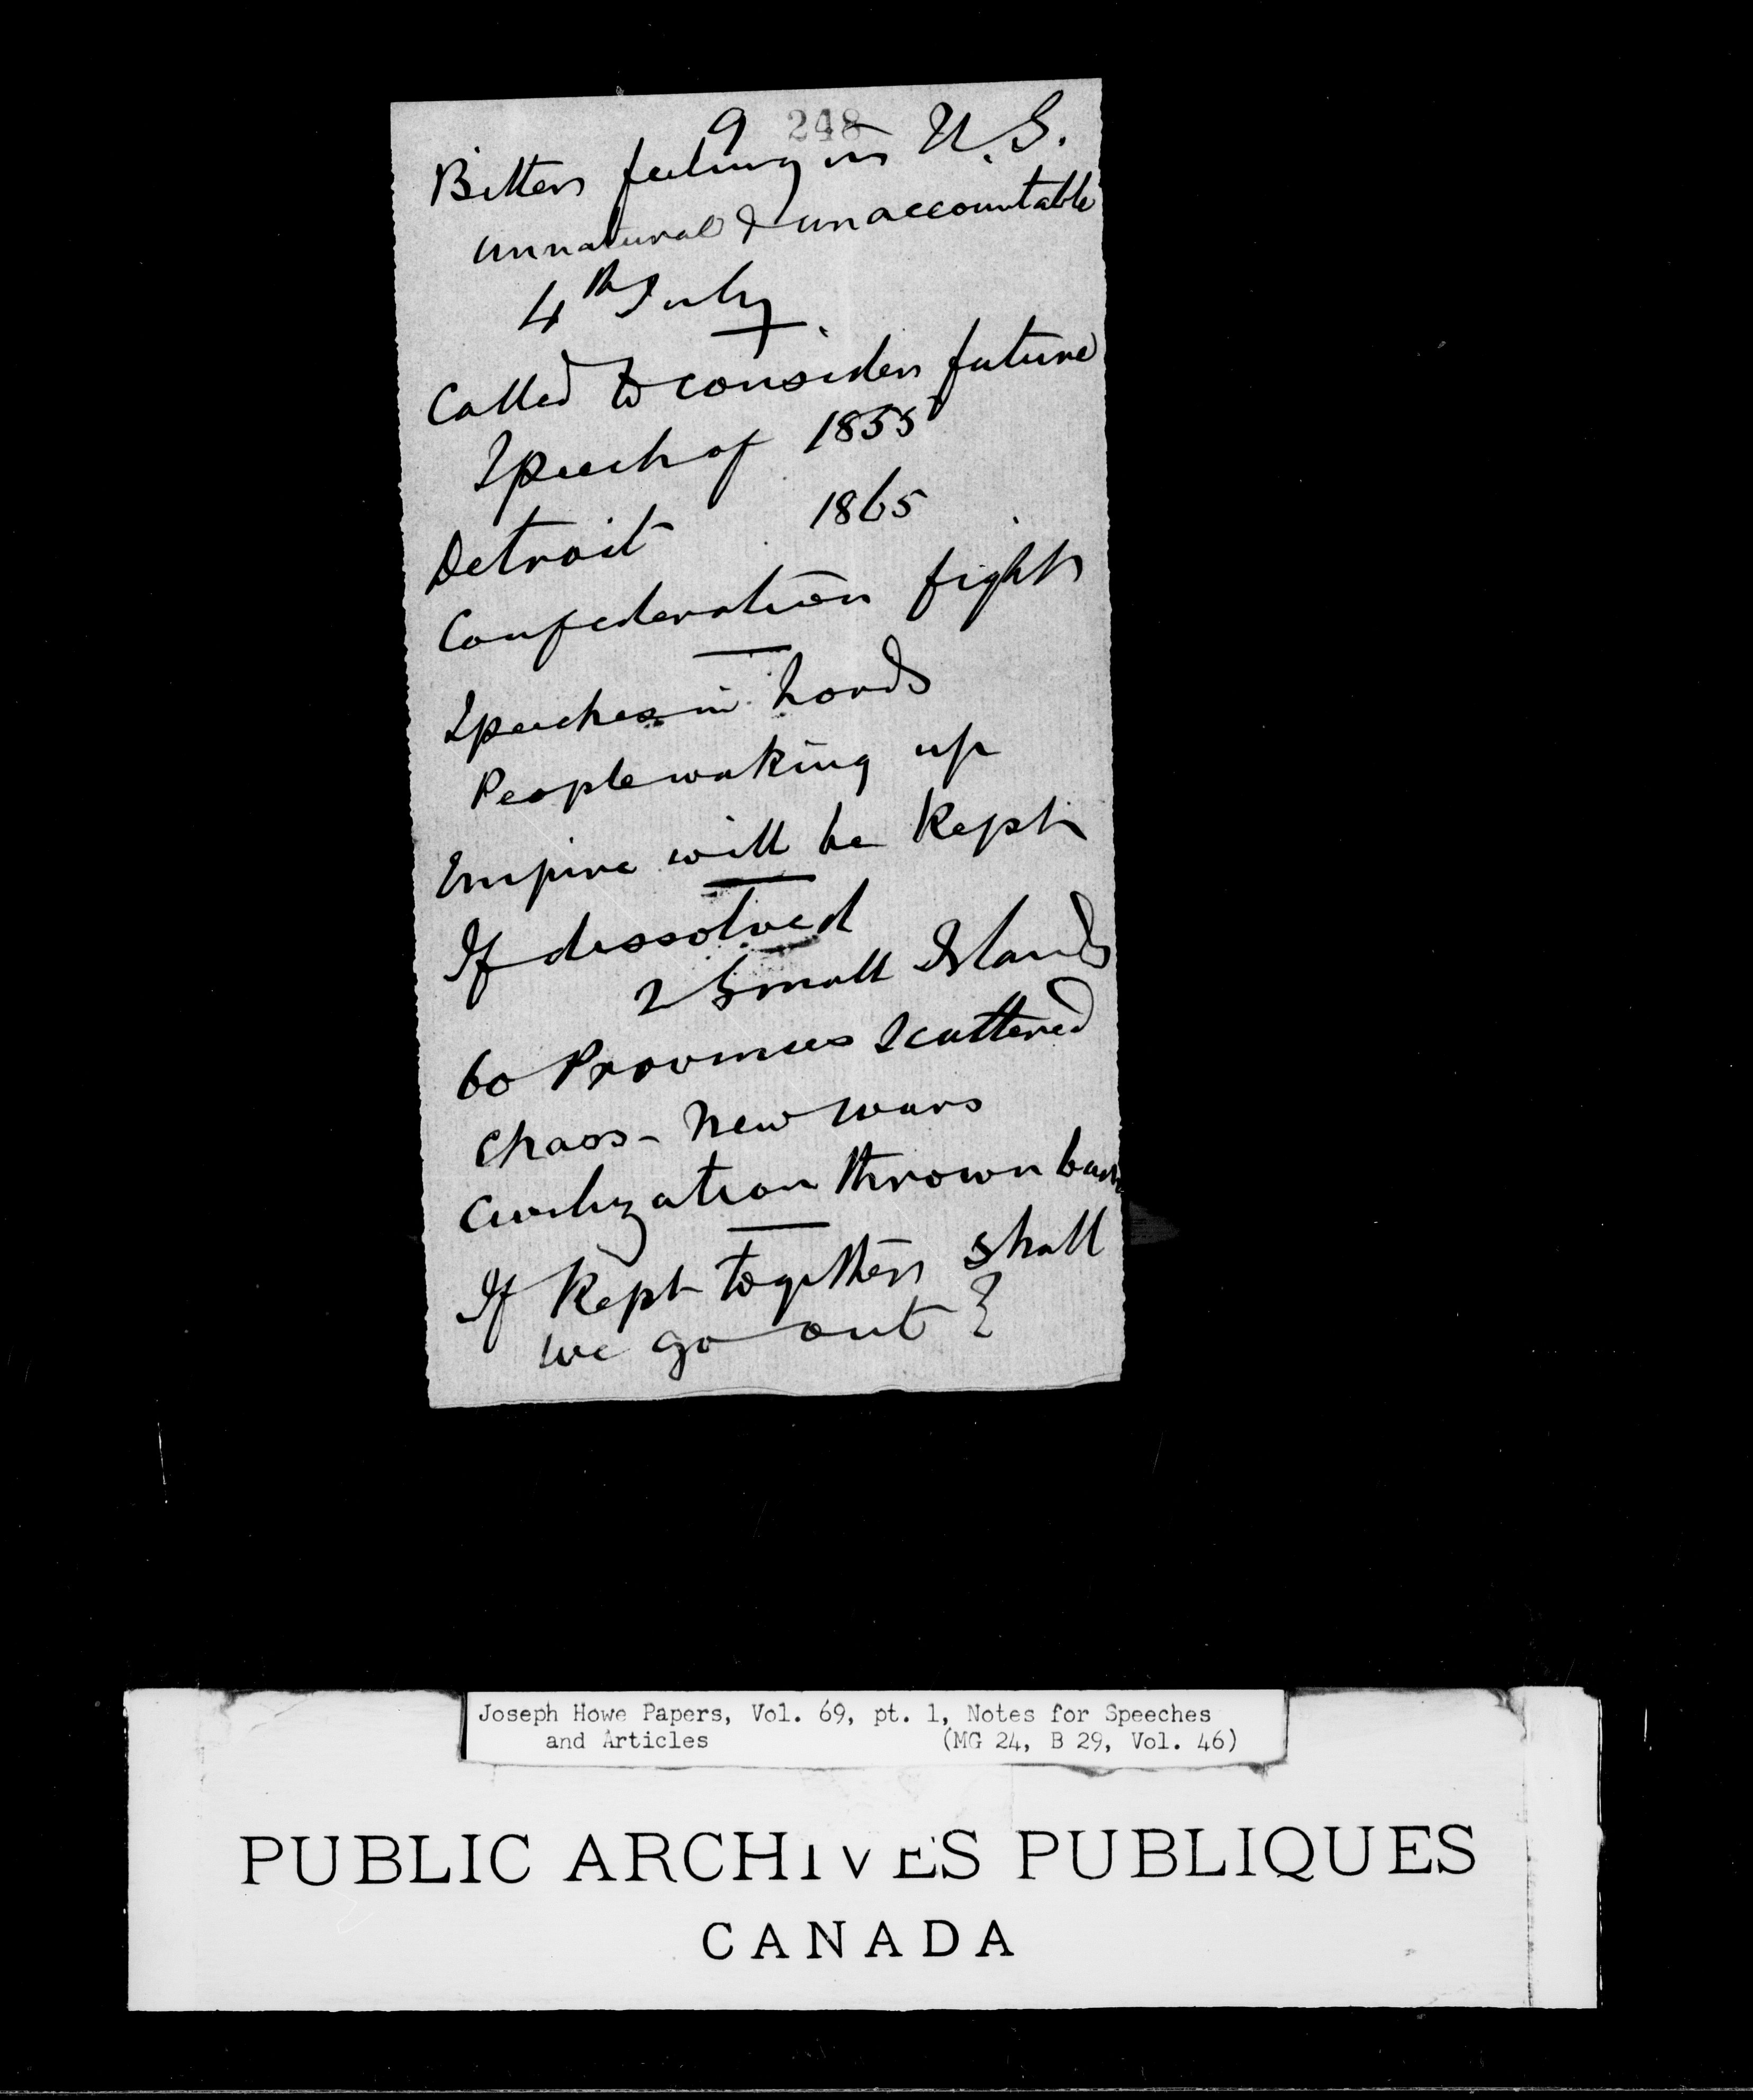 9 248
Bitter feeling in U.S.
unnatural & unaccountable
4th July.
Called to consider future
Speech of 1855
Detroit 1865
Confederation fight
Speeches in Lords
People waking up
Empire will be kept
If dissolved
2 Small Islands
60 Provinces Scattered
Chaos - New wars
Civilization thrown back
If Kept together shall
we go out?
Joseph Howe Papers, Vol. 69, pt. 1, Notes for Speeches
and Articles (MG 24, B 29, Vol. 46)
PUBLIC ARCHIVES PUBLIQUES
CANADA